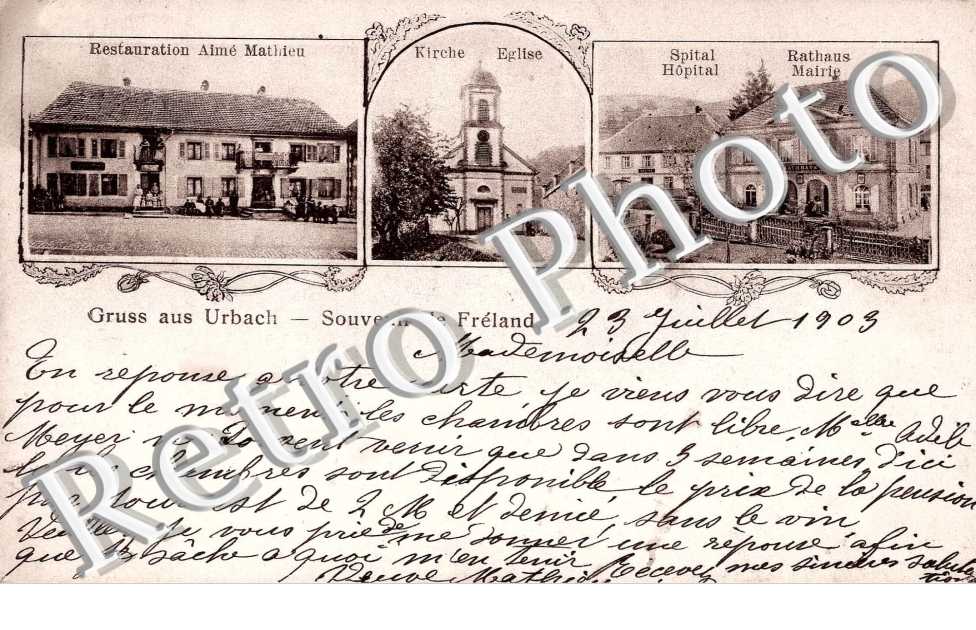 Restauration Aimé Mathieu
Kirche Eglise
Spital Rathaus
Hôpital Mairie
Gruss aus Urbach — Souvenir de Fréland
23 Juillet 1903
Mademoiselle
En réponse a votre carte, je viens vous dire que
pour le moment les chambres sont libre, Melle Adèle
Meyer ne venir que dans 3 semaines d'ici
la les chambres sont disponible le prix de la pension
par jour est de 2 M et demie, sans le vin
Veuillez je vous prie de me donner une réponse afin
que je sâche a quoi m'en tenir Recevez mes sincères saluta
tions
Veuve Mathieu
Retro Photo